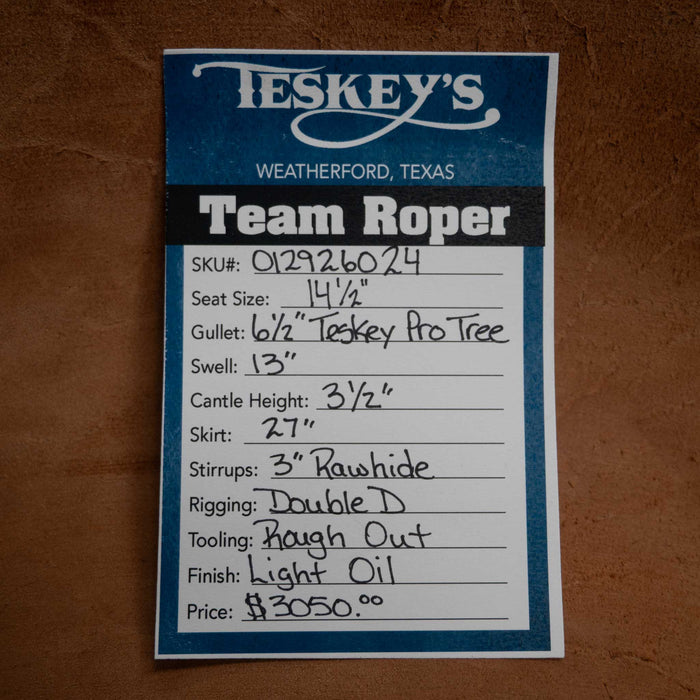 TESKEY'S
WEATHERFORD, TEXAS
Team Roper
SKU#: 012926024
Seat Size: 14 1/2"
Gullet: 6 1/2" Teskey Pro Tree
Swell: 13"
Cantle Height: 3 1/2"
Skirt: 27"
Stirrups: 3" Rawhide
Rigging: Double D
Tooling: Rough Out
Finish: Light Oil
Price: $3050.00